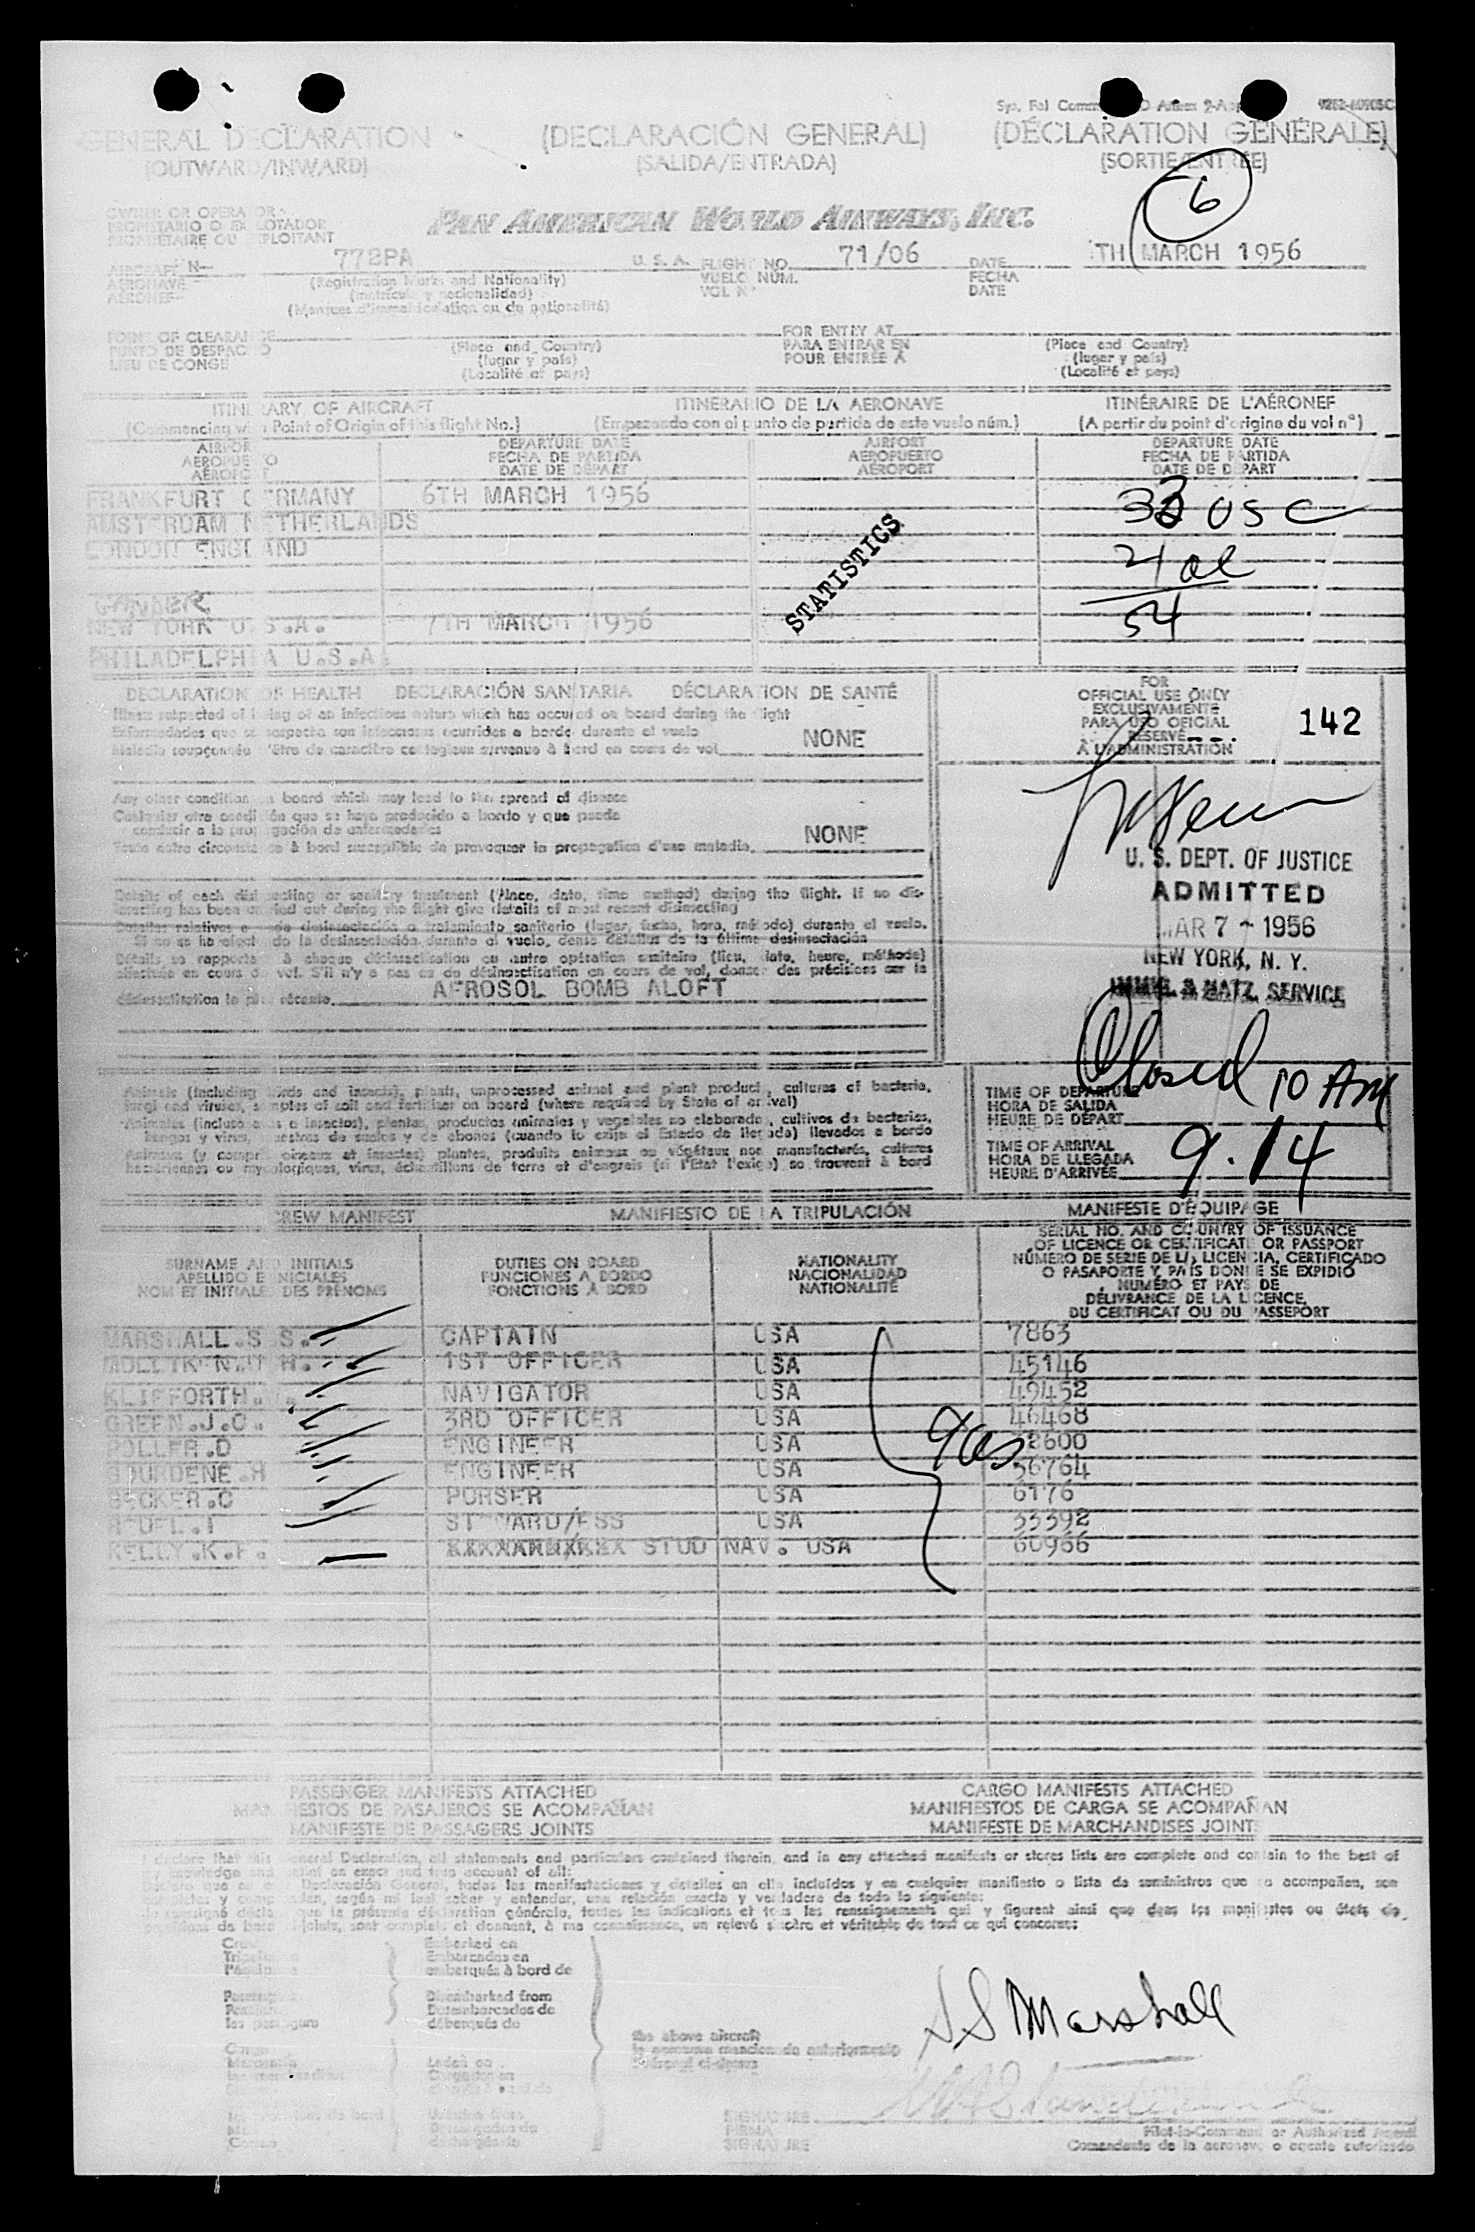 GENERAL DECLARATION (DECLARACIÓN GENERAL) (DÉCLARATION GÉNÉRALE)
(OUTWARD/INWARD) (SALIDA/ENTRADA) (SORTIE/ENTRÉE)
6
OWNER OR OPERATOR
PROPIETARIO O EXPLOTADOR
PROPRIETAIRE OU EXPLOITANT
PAN AMERICAN WORLD AIRWAYS, INC.
AIRCRAFT N— 772PA U. S. A. FLIGHT NO. 71/06 DATE TH MARCH 1956
AERONAVE (Registration Marks and Nationality) VUELO NÚM. FECHA
AÉRONEF (matrícula y nacionalidad) VOL Nº DATE
(Marques d'immatriculation ou de nationalité)
POINT OF CLEARANCE FOR ENTRY AT
PUNTO DE DESPACHO (Place and Country) PARA ENTRAR EN (Place and Country)
LIEU DE CONGÉ (lugar y país) POUR ENTRÉE À (lugar y país)
(Localité et pays) (Localité et pays)
ITINERARY OF AIRCRAFT ITINERARIO DE LA AERONAVE ITINÉRAIRE DE L'AÉRONEF
(Commencing with Point of Origin of this flight No.) (Empezando con el punto de partida de este vuelo núm.) (A partir du point d'origine du vol nº)
AIRPORT DEPARTURE DATE AIRPORT DEPARTURE DATE
AEROPUERTO FECHA DE PARTIDA AEROPUERTO FECHA DE PARTIDA
AÉROPORT DATE DE DÉPART AÉROPORT DATE DE DÉPART
FRANKFURT GERMANY 6TH MARCH 1956
AMSTERDAM NETHERLANDS
LONDON ENGLAND
33 USC
21 al
54
STATISTICS
GANDER
NEW YORK U.S.A. 7TH MARCH 1956
PHILADELPHIA U.S.A.
DECLARATION OF HEALTH DECLARACIÓN SANITARIA DÉCLARATION DE SANTÉ
Illness suspected of being of an infectious nature which has occurred on board during the flight
Enfermedades que se sospecha son infecciosas ocurridas a bordo durante el vuelo
Maladie soupçonnée d'être de caractère contagieux survenue à bord en cours de vol NONE
FOR
OFFICIAL USE ONLY
EXCLUSIVAMENTE
PARA USO OFICIAL
RESERVÉ
À L'ADMINISTRATION
142
Any other condition on board which may lead to the spread of disease
Cualquier otra condición que se haya producido a bordo y que pueda
conducir a la propagación de enfermedades
Toute autre circonstance à bord susceptible de provoquer la propagation d'une maladie. NONE
U. S. DEPT. OF JUSTICE
ADMITTED
MAR 7 - 1956
NEW YORK, N. Y.
IMMIG. & NATZ. SERVICE
Details of each disinsecting or sanitary treatment (Place, date, time method) during the flight. If no dis-
insecting has been carried out during the flight give details of most recent disinsecting
Detalles relativos a cada desinsectación o tratamiento sanitario (lugar, fecha, hora, método) durante el vuelo.
Si no se ha efectuado la desinsectación durante el vuelo, dense detalles de la última desinsectación
Détails se rapportant à chaque désinsectisation ou autre opération sanitaire (lieu, date, heure, méthode)
effectuée en cours de vol. S'il n'y a pas eu de désinsectisation en cours de vol, donner des précisions sur la
désinsectisation la plus récente. AEROSOL BOMB ALOFT
Animals (including birds and insects), plants, unprocessed animal and plant products, cultures of bacteria,
fungi and viruses, samples of soil and fertilizer on board (where required by State of arrival)
Animales (incluso aves e insectos), plantas, productos animales y vegetales no elaborados, cultivos de bacterias,
hongos y virus, muestras de suelos y de abonos (cuando lo exija el Estado de llegada) llevados a bordo
Animaux (y compris oiseaux et insectes) plantes, produits animaux ou végétaux non manufacturés, cultures
bactériennes ou mycologiques, virus, échantillons de terre et d'engrais (si l'Etat l'exige) se trouvent à bord
Closed 10 AM
TIME OF DEPARTURE
HORA DE SALIDA
HEURE DE DÉPART
TIME OF ARRIVAL
HORA DE LLEGADA
HEURE D'ARRIVÉE
9.14
CREW MANIFEST MANIFIESTO DE LA TRIPULACIÓN MANIFESTE D'ÉQUIPAGE
SURNAME AND INITIALS
APELLIDO E INICIALES
NOM ET INITIALES DES PRÉNOMS
DUTIES ON BOARD
FUNCIONES A BORDO
FONCTIONS À BORD
NATIONALITY
NACIONALIDAD
NATIONALITÉ
SERIAL NO. AND COUNTRY OF ISSUANCE
OF LICENCE OR CERTIFICATE OR PASSPORT
NÚMERO DE SERIE DE LA LICENCIA, CERTIFICADO
O PASAPORTE Y PAÍS DONDE SE EXPIDIÓ
NUMÉRO ET PAYS DE
DÉLIVRANCE DE LA LICENCE,
DU CERTIFICAT OU DU PASSEPORT
MARSHALL.S S. CAPTAIN USA 7863
1ST OFFICER USA 45146
KLIFFORTH. NAVIGATOR USA 49452
GREEN.J.C. 3RD OFFICER USA 46468
ENGINEER USA 2600
GOURDENE.H ENGINEER USA 36764
BECKER.C PURSER USA 6176
STEWARD/ESS USA 33392
KELLY.K.F. STUD NAV. USA 60966
9 us
PASSENGER MANIFESTS ATTACHED CARGO MANIFESTS ATTACHED
MANIFIESTOS DE PASAJEROS SE ACOMPAÑAN MANIFIESTOS DE CARGA SE ACOMPAÑAN
MANIFESTE DE PASSAGERS JOINTS MANIFESTE DE MARCHANDISES JOINTS
I declare that this General Declaration, all statements and particulars contained therein, and in any attached manifests or stores lists are complete and contain to the best of
my knowledge and belief an exact and true account of all:
Declaro que en esta Declaración General, todas las manifestaciones y detalles en ella incluidos y en cualquier manifiesto o lista de suministros que se acompañen, son
completos y comprenden, según mi leal saber y entender, una relación exacta y verdadera de todo lo siguiente:
Crew
Embarked on
Embarcados en
embarqués à bord de
Disembarked from
Desembarcados de
débarqués de
Cargo
the above aircraft
SS Marshall
SIGNATURE
FIRMA
SIGNATURE
Pilot-in-Command or Authorized Agent
Comandante de la aeronave o agente autorizado